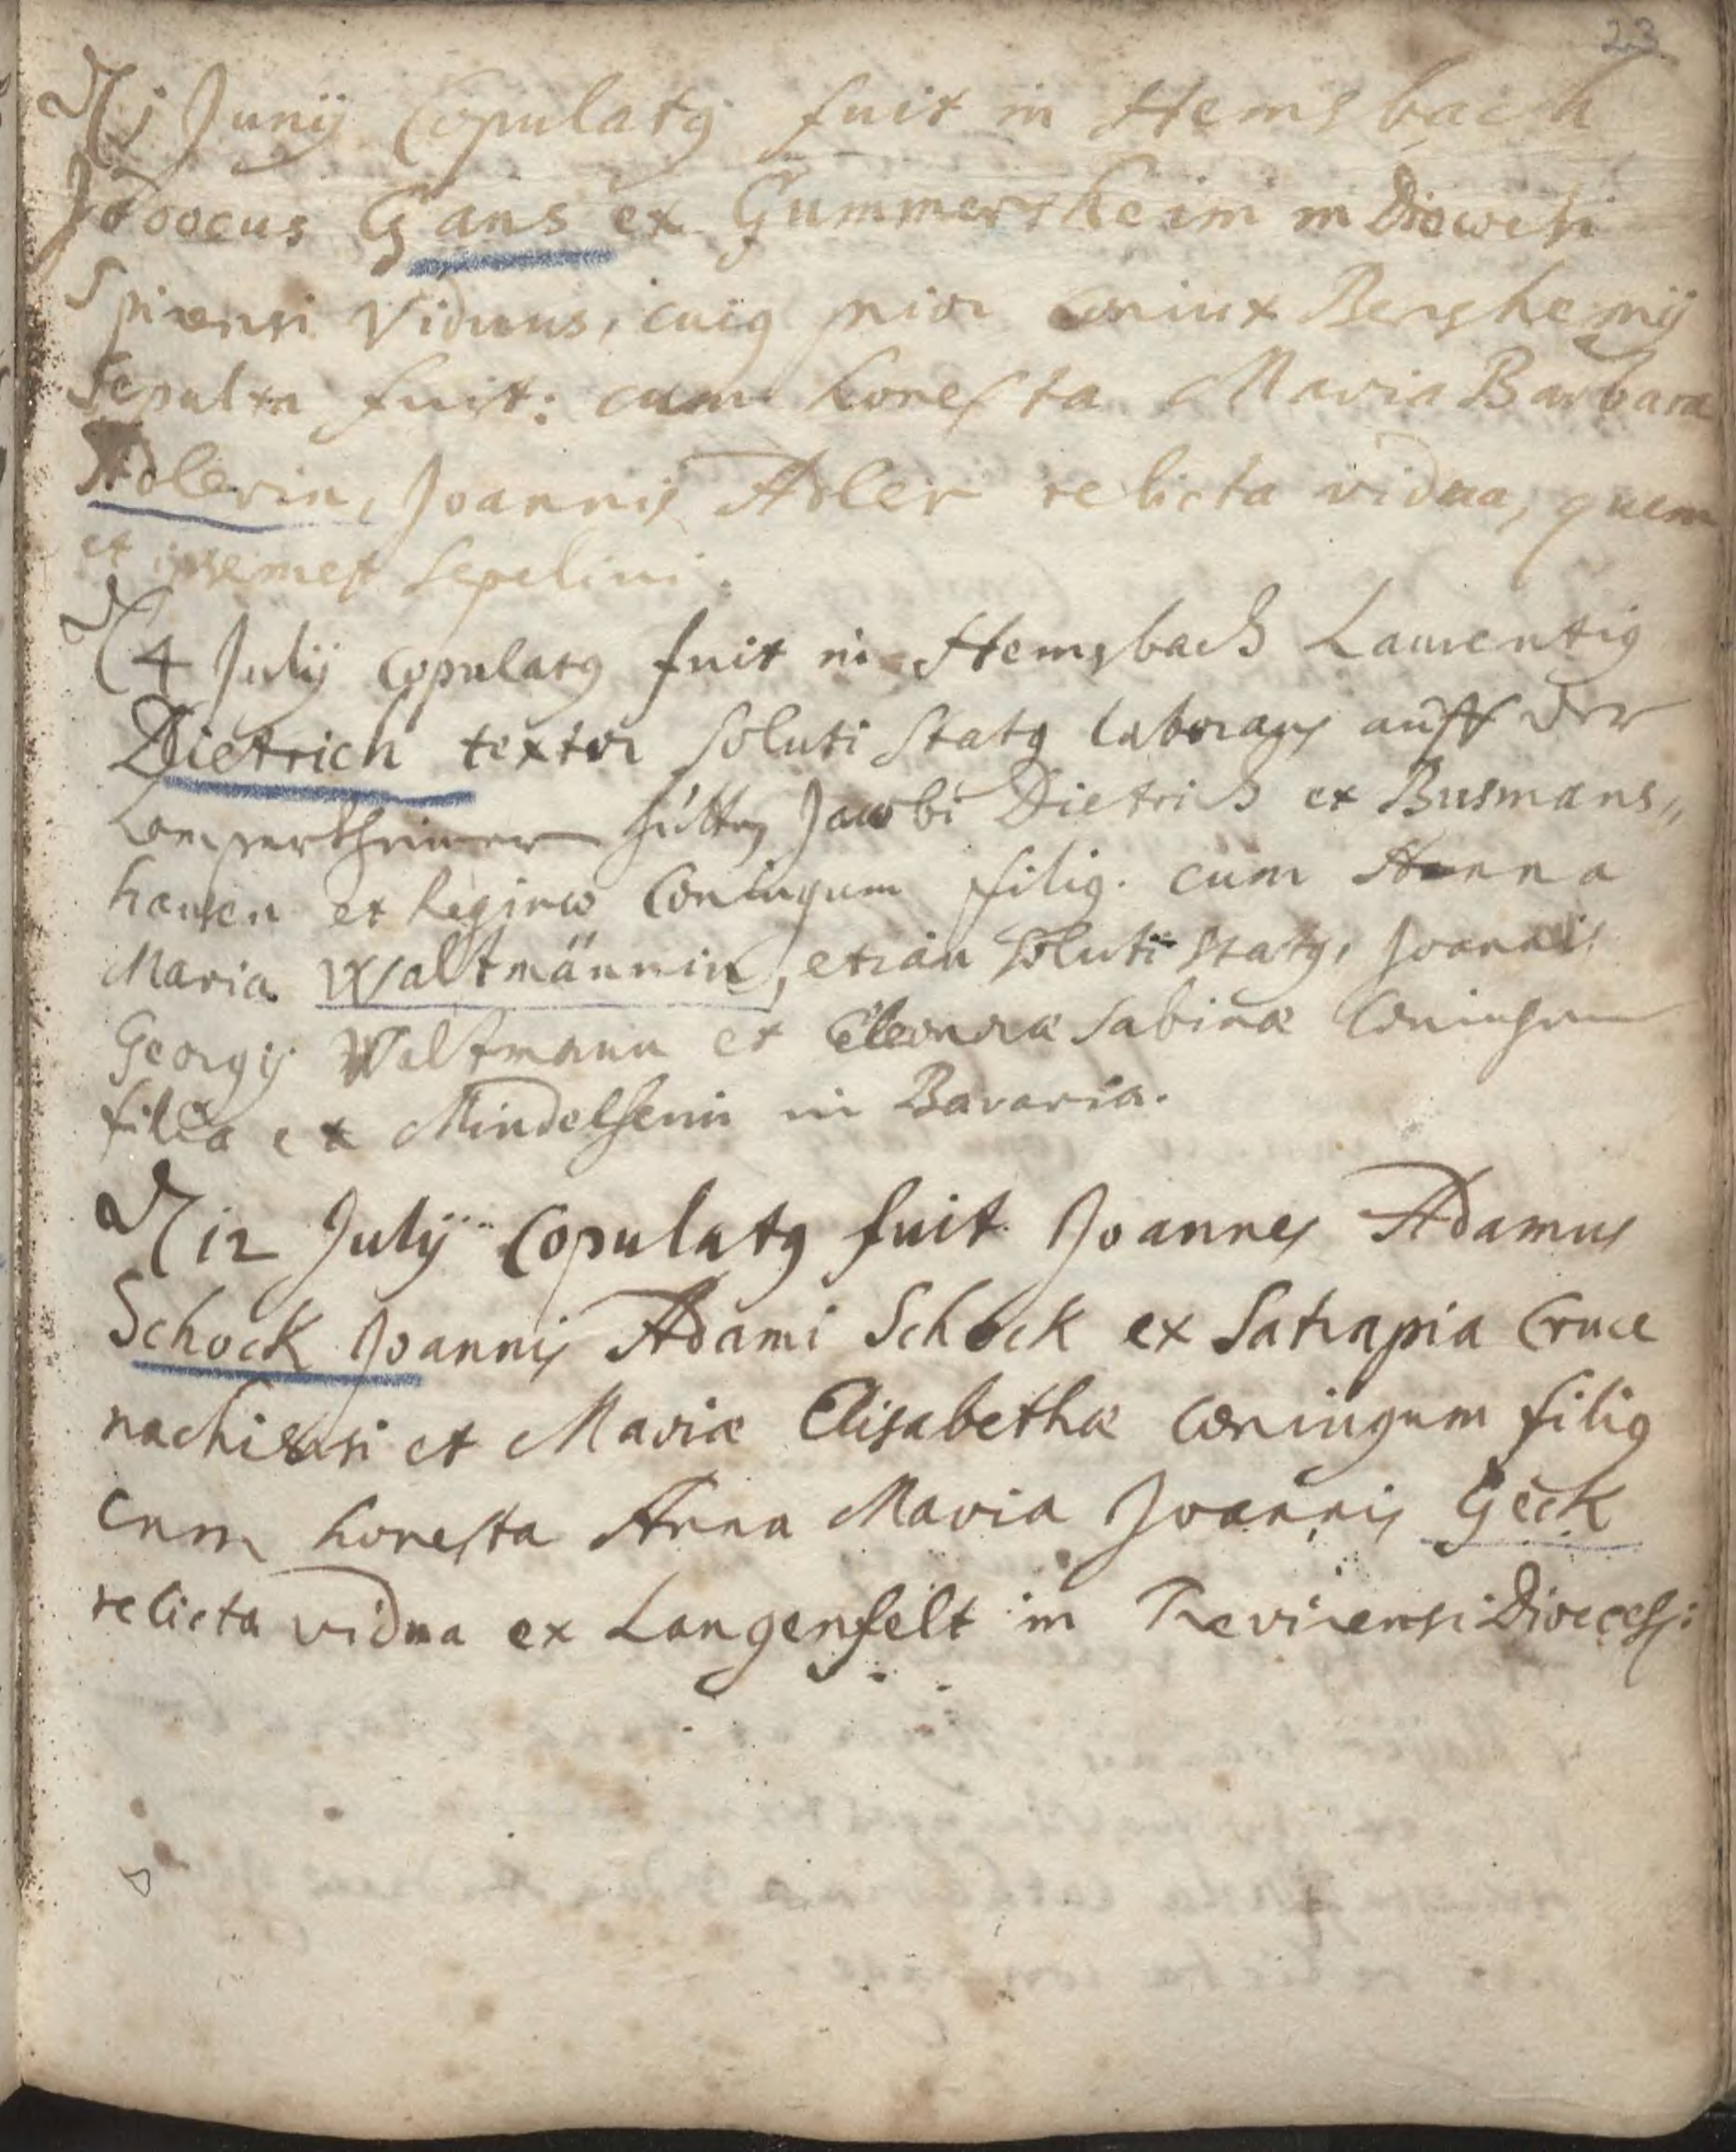 23
D 1 Junij Copulatg fuit in Hemsbach
Jodocus Gans ex Gummersheim in Dioecesi
Spirensi Viduus, cuig prior Coniux Berghemij
Sepulta fuit: cum honesta Maria Barbara
Adlerin, Joannis Adler relicta vidua, quem
et ipsemet Sepelivi.
D 4 Julij Copulatg fuit in Hemsbach Laurentig
Dietrich textor soluti statg laborans auff der
Lampertheimer hütten Jacobi Dietrich ex Busmans„
hausen et Reginae Coniugum filig. cum Anna
Maria Waltmännin, etiam soluti statg, Joannis
Georgij Waltmann et Eleonorae Sabinae Coniugum
filia ex Mindelheim in Bavaria.
D 12 Julij Copulatg fuit Joannes Adamus
Schock Joannis Adami Schock ex Satrapia Cruce
nachiensi et Mariae Elisabethae Coniugum filig
cum honesta Anna Maria Joannis Geck
relicta vidua ex Langenfelt in Trevirensi Dioecesi